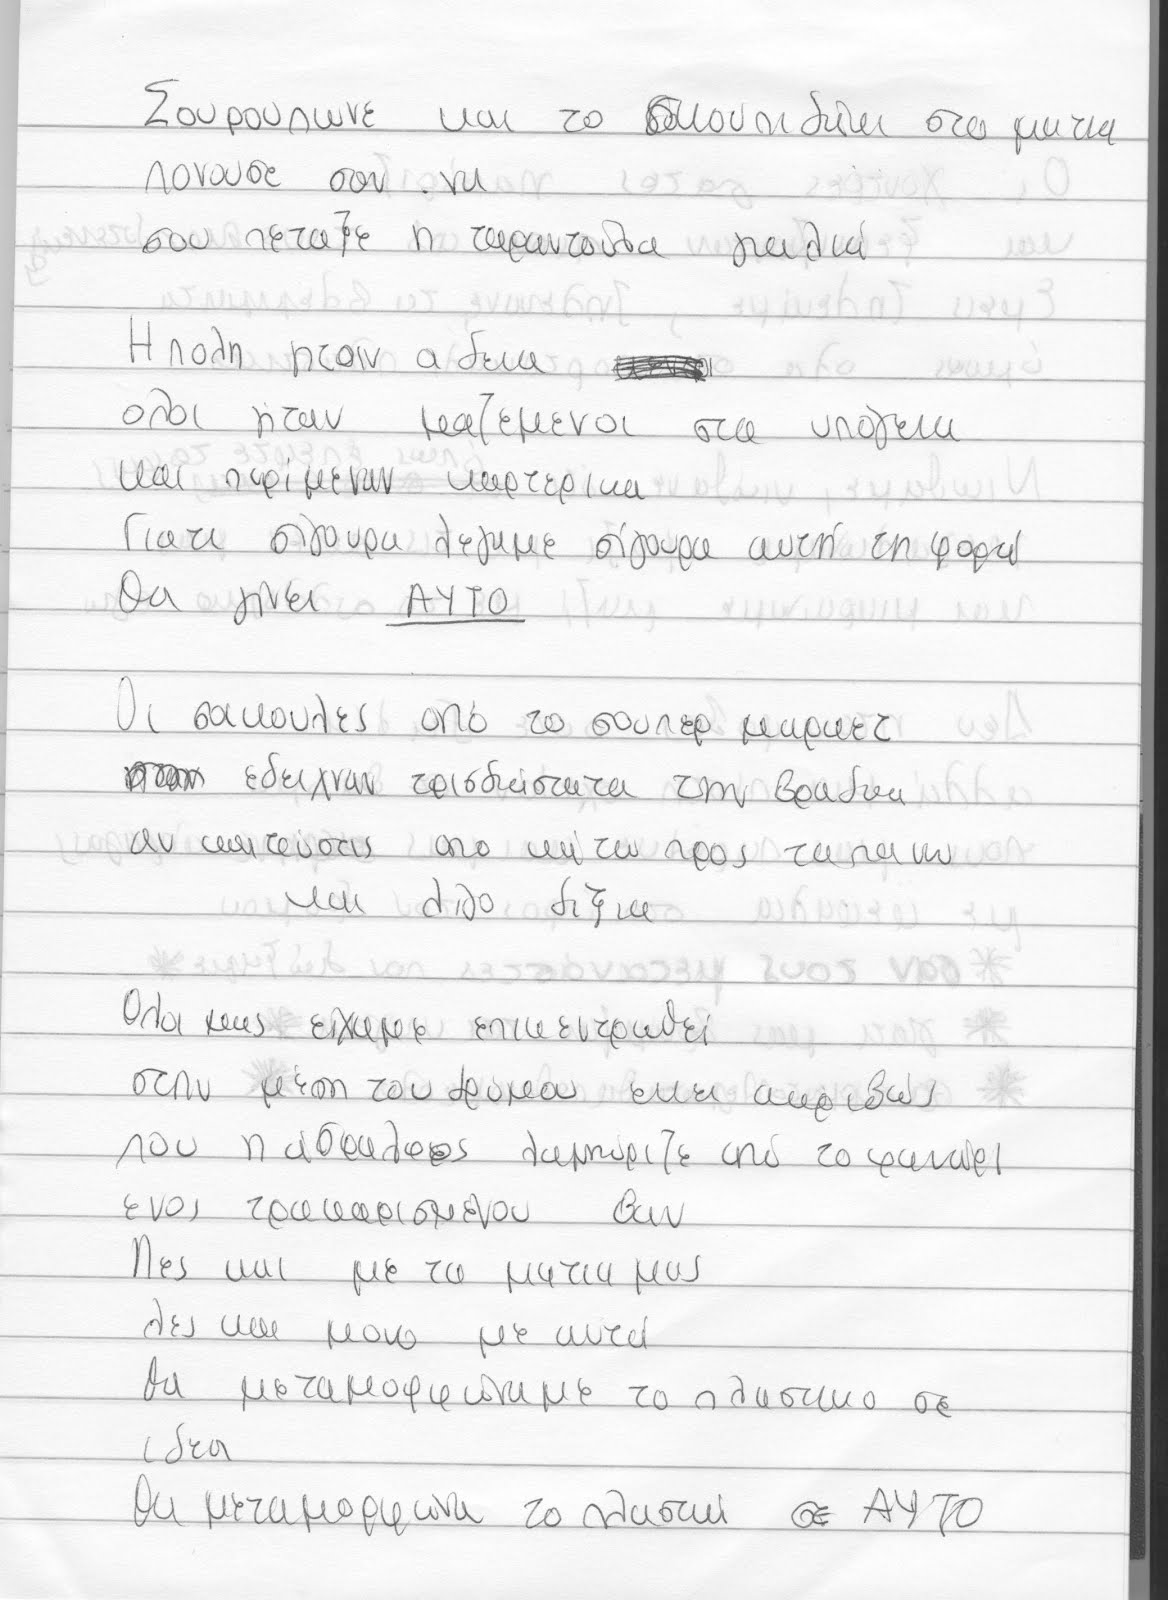 Σουρουπωνε και το σκουπιδακι στα ματια
πονουσε σαν να
σου πεταξε η ταραντουλα γυαλιά
Η πολη ηταν αδεια
ολοι ήταν μαζεμενοι στα υπογεια
και περίμεναν καρτερικα
Γιατι σίγουρα λεγαμε σίγουρα αυτή τη φορά
θα γίνει ΑΥΤΟ
Οι σακουλες από το σουπερ μαρκετ
εδειχναν τρισδιάστατα την βραδια
αν κοιτούσες απο κάτω προς τα πανω
και λιγο δεξια
Ολοι μας ειχαμε επικεντρωθεί
στην μέση του δρόμου εκει ακριβώς
που η άσφαλτος λαμπύριζε από το φανάρι
ενος τρακαρισμενου βαν
Λες και με τα ματια μας
λες και μονο με αυτά
θα μεταμορφώναμε το πλαστικο σε
ιδεα
θα μεταμορφώνα το πλαστικό σε ΑΥΤΟ